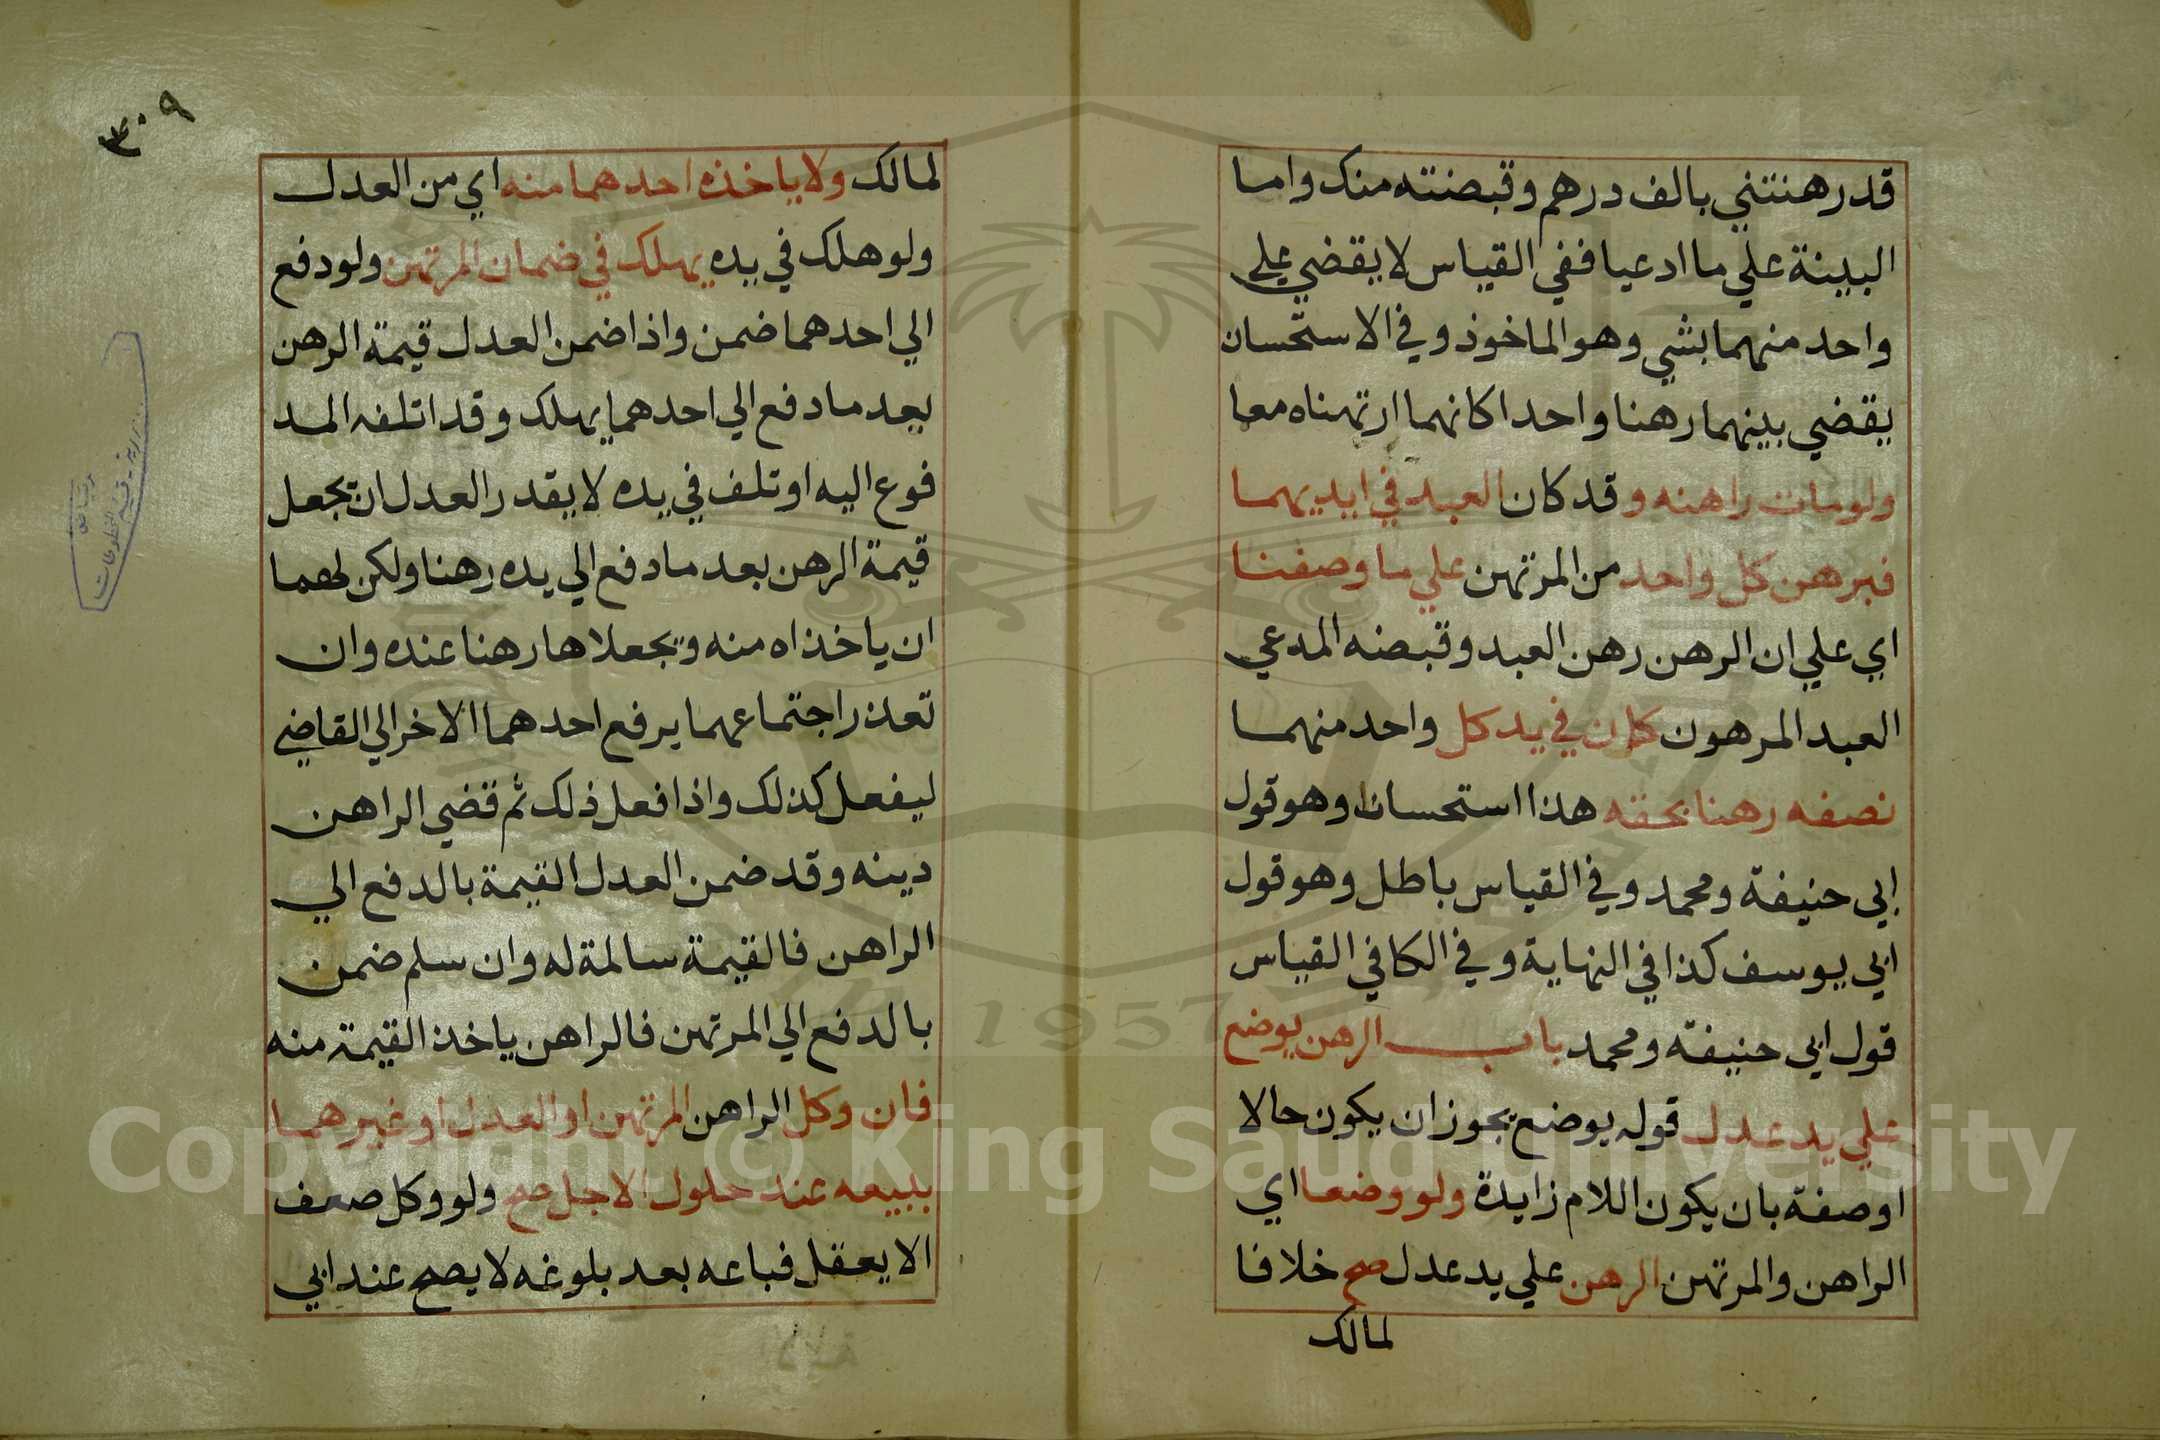 قد رهنتني بالف درهم وقبضته منك واما
البينة علي ما ادعيا ففي القياس لا يقضي علي
واحد منهما بشي وهو الماخوذ وفي الاستحسان
يقضي بينهما رهنا واحدا كانهما ارتهناه معا
ولو مات راهنه وقد كان العبد في ايديهما
فبرهن كل واحد من المرتهن علي ما وصفنا
اي علي ان الرهن رهن العبد وقبضه المدعي
العبد المرهون كان في يد كل واحد منهما
نصفه رهنا بحقه هذا استحسانا وهو قول
ابي حنيفة ومحمد وفي القياس باطل وهو قول
ابي يوسف كذا في النهاية وفي الكافي القياس
قول ابي حنيفة ومحمد باب الرهن يوضع
علي يد عدل قوله يوضع يجوز ان يكون حالا
او صفة بان يكون اللام زايدة ولو وضعا اي
الراهن والمرتهن الرهن علي يد عدل صح خلافا
لمالك
٣٠٩
لمالك ولا ياخذه احدهما منه اي من العدل
ولو هلك في يده يهلك في ضمان المرتهن ولو دفع
الي احدهما ضمن واذا ضمن العدل قيمة الرهن
بعد ما دفع الي احدهما يهلك وقد اتلفه المد
فوع اليه او تلف في يده لا يقدر العدل ان يجعل
قيمة الرهن بعد ما دفع الي يده رهنا ولكن لهما
ان ياخذاه منه ويجعلاها رهنا عنده وان
تعذر اجتماعهما يرفع احدهما الاخر الي القاضي
ليفعل كذلك واذا فعل ذلك ثم قضي الراهن
دينه وقد ضمن العدل القيمة بالدفع الي
الراهن فالقيمة سالمة له وان سلم ضمن
بالدفع الي المرتهن فالراهن ياخذ القيمة منه
فان وكل الراهن المرتهن او العدل او غيرهما
ببيعه عند حلول الاجل صح ولو وكل صعف
الا يعقل فباعه بعد بلوغه لا يصح عند ابي
1957
Copyright © King Saud University